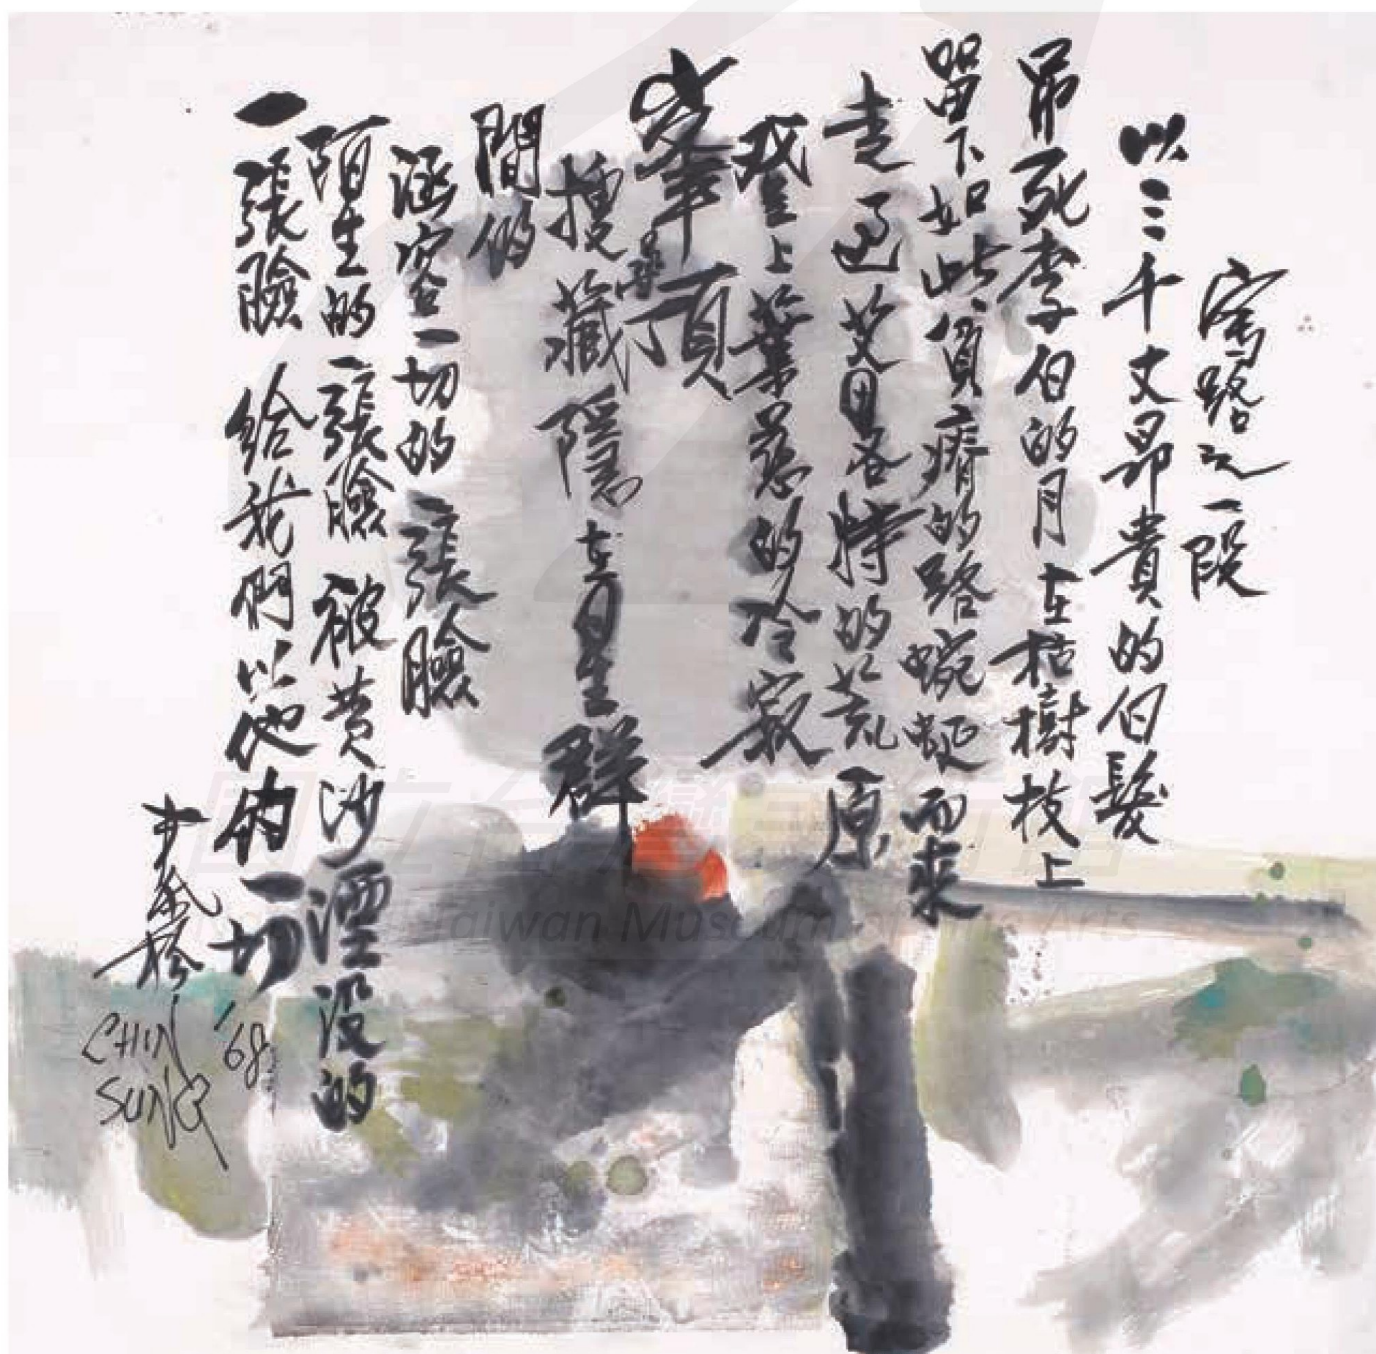 寫路之一段
以三千丈昂貴的白髮
吊死李白的月在枯樹枝上
留下如此貧瘠的路蜿蜒而來
走過艾畧特的荒原
登上葉慈的冷寂
峯頂
搜藏隱在生群
間的
涵容一切的一張臉
陌生的一張臉 被黃沙湮没的
一張臉 給我們以他的一切
CHIN
SUNG
'68
國立台灣美術館
National Taiwan Museum of Fine Arts